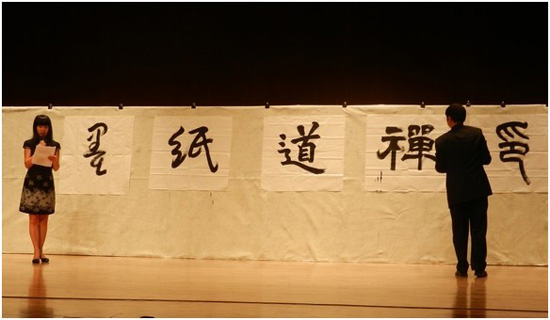 墨纸道禪印